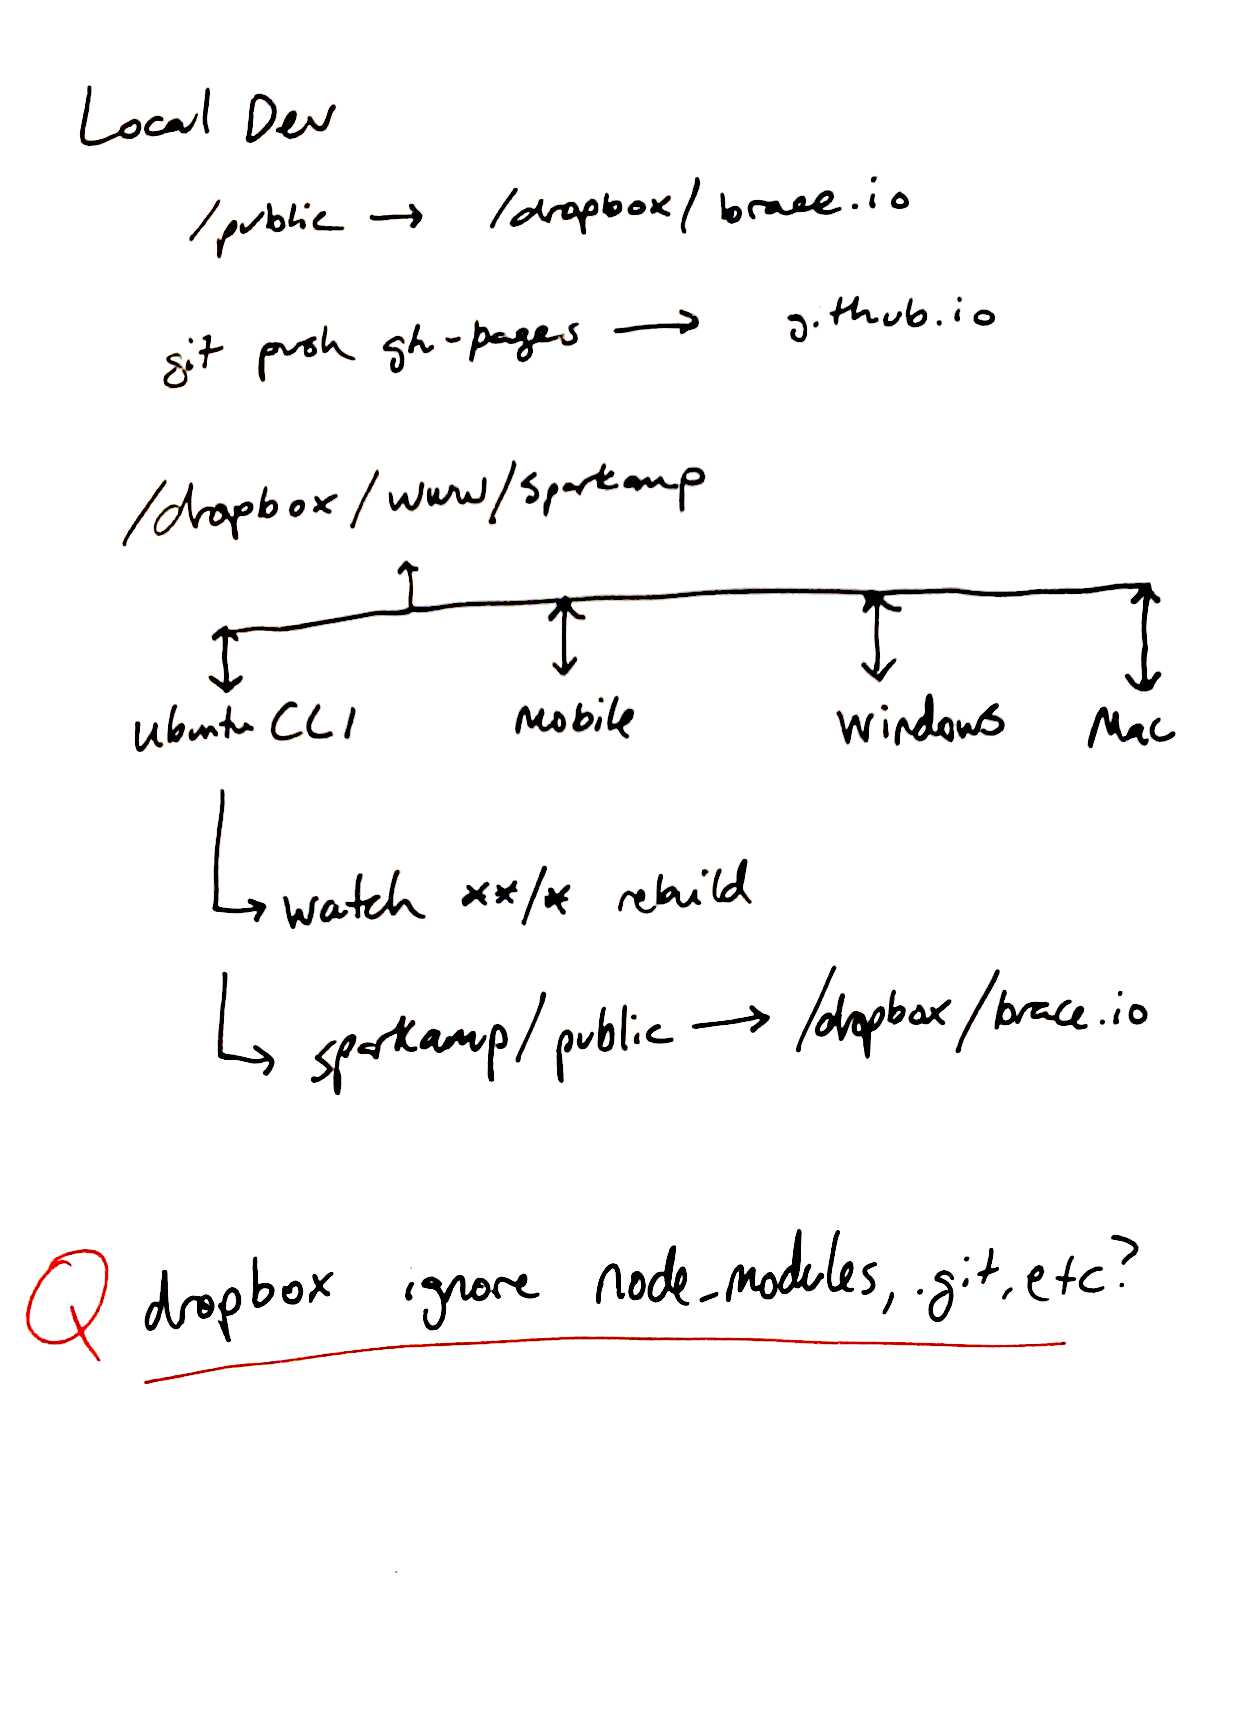 Local Dev
/public → /dropbox/brace.io
git push gh-pages → github.io
/dropbox/www/sparkamp
Ubuntu CLI Mobile Windows Mac
watch **/* rebuild
sparkamp/public → /dropbox/brace.io
Q dropbox ignore node_modules, .git, etc?